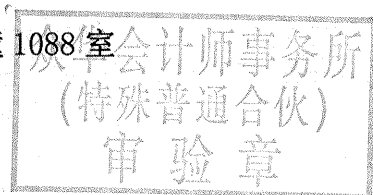 1088 室
众华会计师事务所
(特殊普通合伙)
审验章